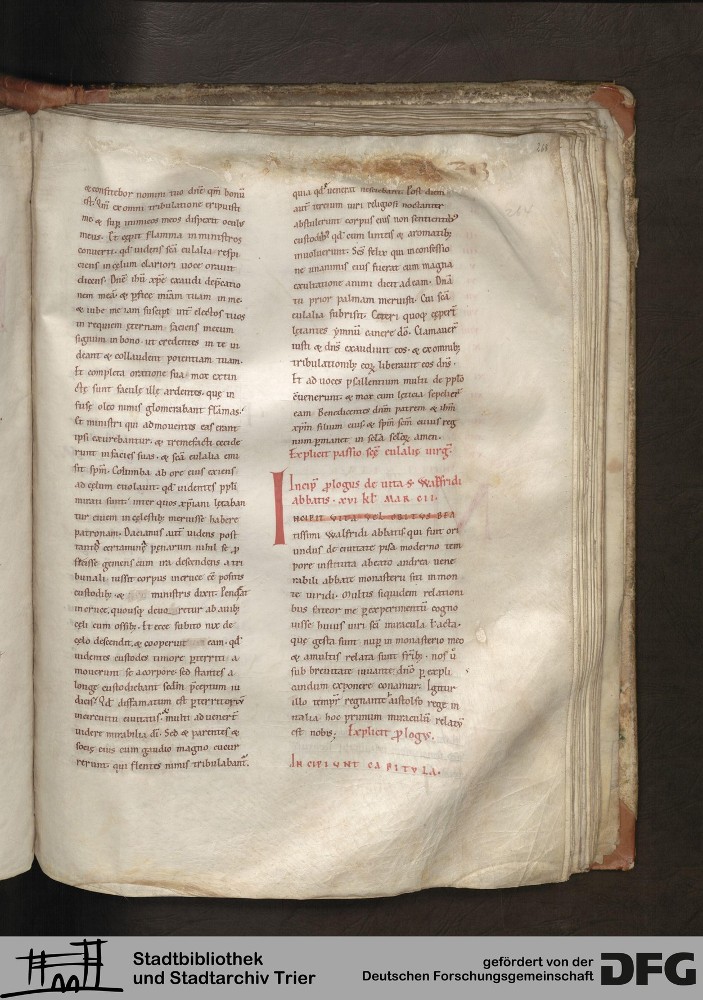 264
264
& confitebor nomini tuo dñe qm̄ bonū
est. Qm̄ ex omni tribulatione eripuisti
me & sup inimicos meos dispexit oculus
meus. Et cepit flamma in ministros
converti. qđ videns scā eulalia respi
ciens in cęlum clariori voce oravit
dicens. Dn̄e ihū xpe exaudi dep̄catio
nem meā. & p̄fice miā tuam in me.
& iube me iam suscipi int̄ electos tuos
in requiem ęternam. faciens mecum
signum in bono. ut credentes in te vi
deant & collaudent potentiam tuam.
Et completa oratione sua. mox extin
ctę sunt faculę illę ardentes. quę in
fusę oleo nimis glomerabant flamas.
Et ministri qui admoventes eas erant
ipsi exurebantur. & tremefacti cecide
runt in facies suas. & scā eulalia emi
sit spm̄. Columba ab ore eius exiens
ad cęlum evolavit. qđ videntes ppli
mirati sunt. inter quos xp̄iani lętaban
tur civem in cęlestib; meruisse habere
patronam. Dacianus aut̄ videns post
tantū certaminū penarum nihil se p
fecisse gemens cum ira descendens a tri
bunali iussit corpus in cruce eē positis
custodib; & ministris dixit. Pendeat
in cruce. quousq; devo retur ab avib;
cęli cum ossib;. Et ecce subito nix de
cęlo descendit. & cooperuit eam. qđ
videntes custodes timore pterriti a
moverunt se a corpore. sed stantes a
longe custodiebant sedm̄ p̄ceptum iu
dicis. Qđ diffamatum est p territoriū
in circuitu civitatis. multi advenert̄
videre mirabilia dī. Sed & parentes &
socię eius cum gaudio magno cucur
rerunt. qui flentes nimis tribulabant̄.
quia qđ venerat nesciebant. Post diem
aut̄ tertium viri religiosi noctanter
abstulerunt corpus eius non sentientib;
custodib; qđ cum linteis & aromatib;
involverunt. Scs̄ felix qui in confessio
ne unanimis eius fuerat cum magna
exultatione animi dicit ad eam. Dn̄a
tu prior palmam meruisti. Cui scā
eulalia subrisit. Ceteri quoq; ceper̄t
lętantes ymnū canere dō. Clamaver̄
iusti & dn̄s exaudivit eos. & ex omnib;
tribulationib; eoꝝ liberavit eos dn̄s.
Et ad voces psallentium multi de pplo
cvenerunt. & mox cum lęticia sepelier̄
eam. Benedicentes dm̄ patrem & ihm̄
xpm̄ filium eius & spm̄ scm̄ cuius reg
num pmanet in scla scloꝝ amen.
Explicit passio scę eulalię virḡ.
Incip plogus de vita s̄ Walfridi
abbatis. xvi kl̄ marcii.
incipit vita vel obitus bea
tissimi Walfridi abbatis qui fuit ori
undus de civitate pisa moderno tem
pore instituta ab eo andrea vene
rabili abbate monasterii siti in mon
te viridi. Multis siquidem relationi
bus fateor me p experimentū cogno
visse huius viri scī miracula & acta.
quę gesta sunt nup in monasterio meo
& a multis relata sunt frib;. nos ū
sub brevitate iuvante dn̄o p expli
candum exponere conamur. Igitur
illo tempr̄ regnante aistolfo rege in
italia hoc primum miraculū relatū
est nobis. Explicit plogus.
Incipiunt capitula.
Stadtbibliothek
und Stadtarchiv Trier
gefördert von der
Deutschen Forschungsgemeinschaft
DFG